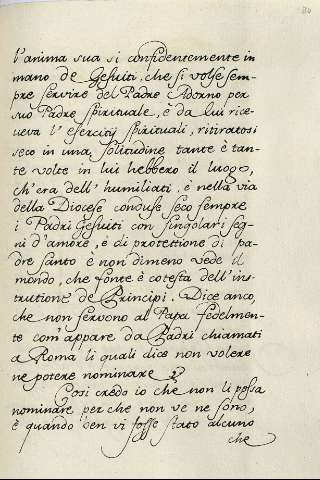 l'anima sua si confidentemente in
mano de Gesuiti, che si volse sem-
pre servire del Padre Adorno per
suo Padre spirituale, è da lui rice-
veva l'esercitij spirituali, ritiratosi
seco in una solitudine tante è tan-
te volte in lui hebbero il luogo,
ch'era dell'humiliati, è nella via
della Diocese conduse seco sempre
i Padri Gesuiti con singolari seg-
ni d'amore, e di protettione di pa-
dre santo è non dimeno vede il
mondo, che fonte è cotesta dell'ins-
trutione de Principi. Dice anco,
che non servono al Papa fedelmen-
te com'appare da Padri chiamati
a Roma li quali dice non volere
ne potere nominare
Cosi credo io che non li possa
nominare per che non ve ne sono,
è quando ben vi fosse stato alcuno
che